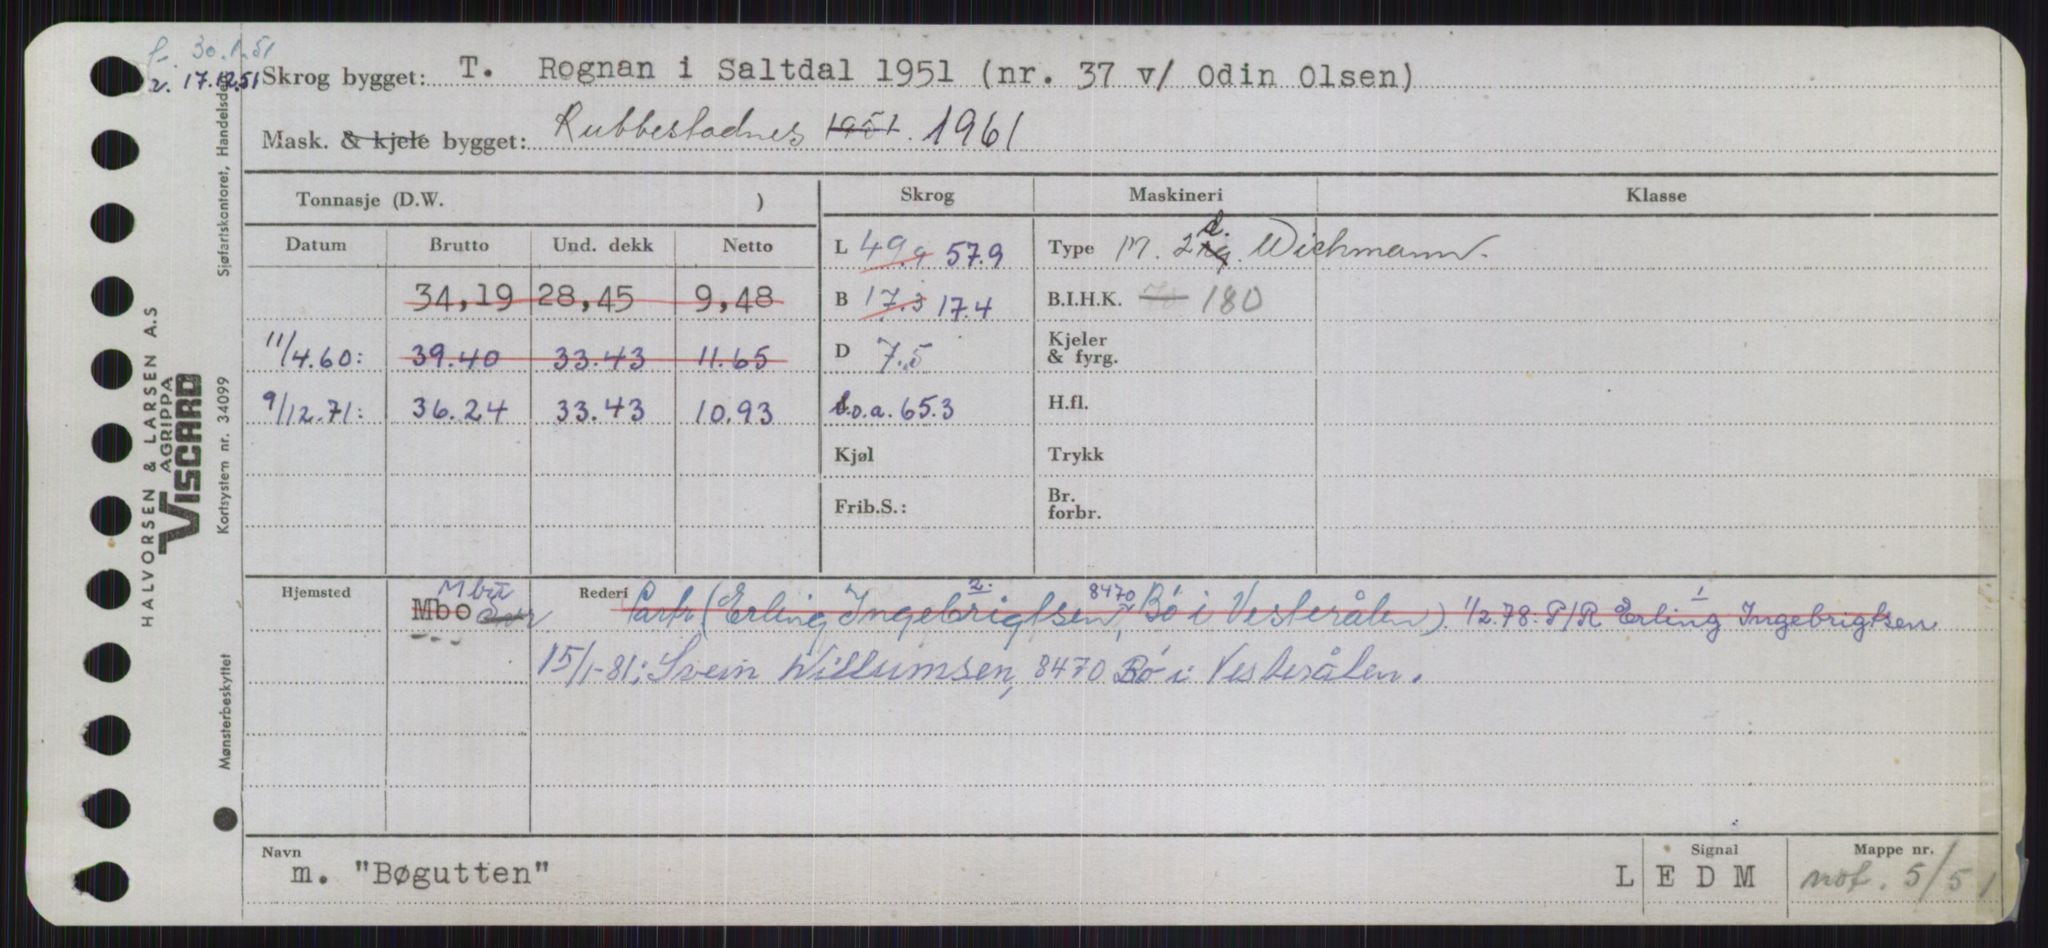 f. 30.1.51
r. 17.12.51
Skrog bygget: T. Rognan i Saltdal 1951 (nr. 37 v/ Odin Olsen)
Mask. & kjele bygget: Rubbestadnes 1951. 1961
Tonnasje (D.W. ) Skrog Maskineri Klasse
Datum Brutto Und. dekk Netto L 49.9 57.9 Type M. 2 d. Wichmann.
34,19 28,45 9,48 B 17.3 17.4 B.I.H.K. 70 180
11/4.60: 39.40 33.43 11.65 D 7.5 Kjeler & fyrg.
9/12.71: 36.24 33.43 10.93 l.o.a. 65.3 H.fl.
Kjøl Trykk
Frib.S.: Br. forbr.
Hjemsted Mbo Rederi Partr. (Erling Ingebrigtsen, 2. 8470 Bø i Vesterålen). 1/2.78: P/R Erling 1 Ingebrigtsen
15/1-81: Svein Willumsen, 8470 Bø i Vesterålen.
Navn Signal Mappe nr.
m. "Bøgutten" L E D M not. 5/51
HALVORSEN & LARSEN A.S
AGRIPPA
VISCARD
Sjøfartskontoret, Handelsdep.
Kortsystem nr. 34099
Mønsterbeskyttet